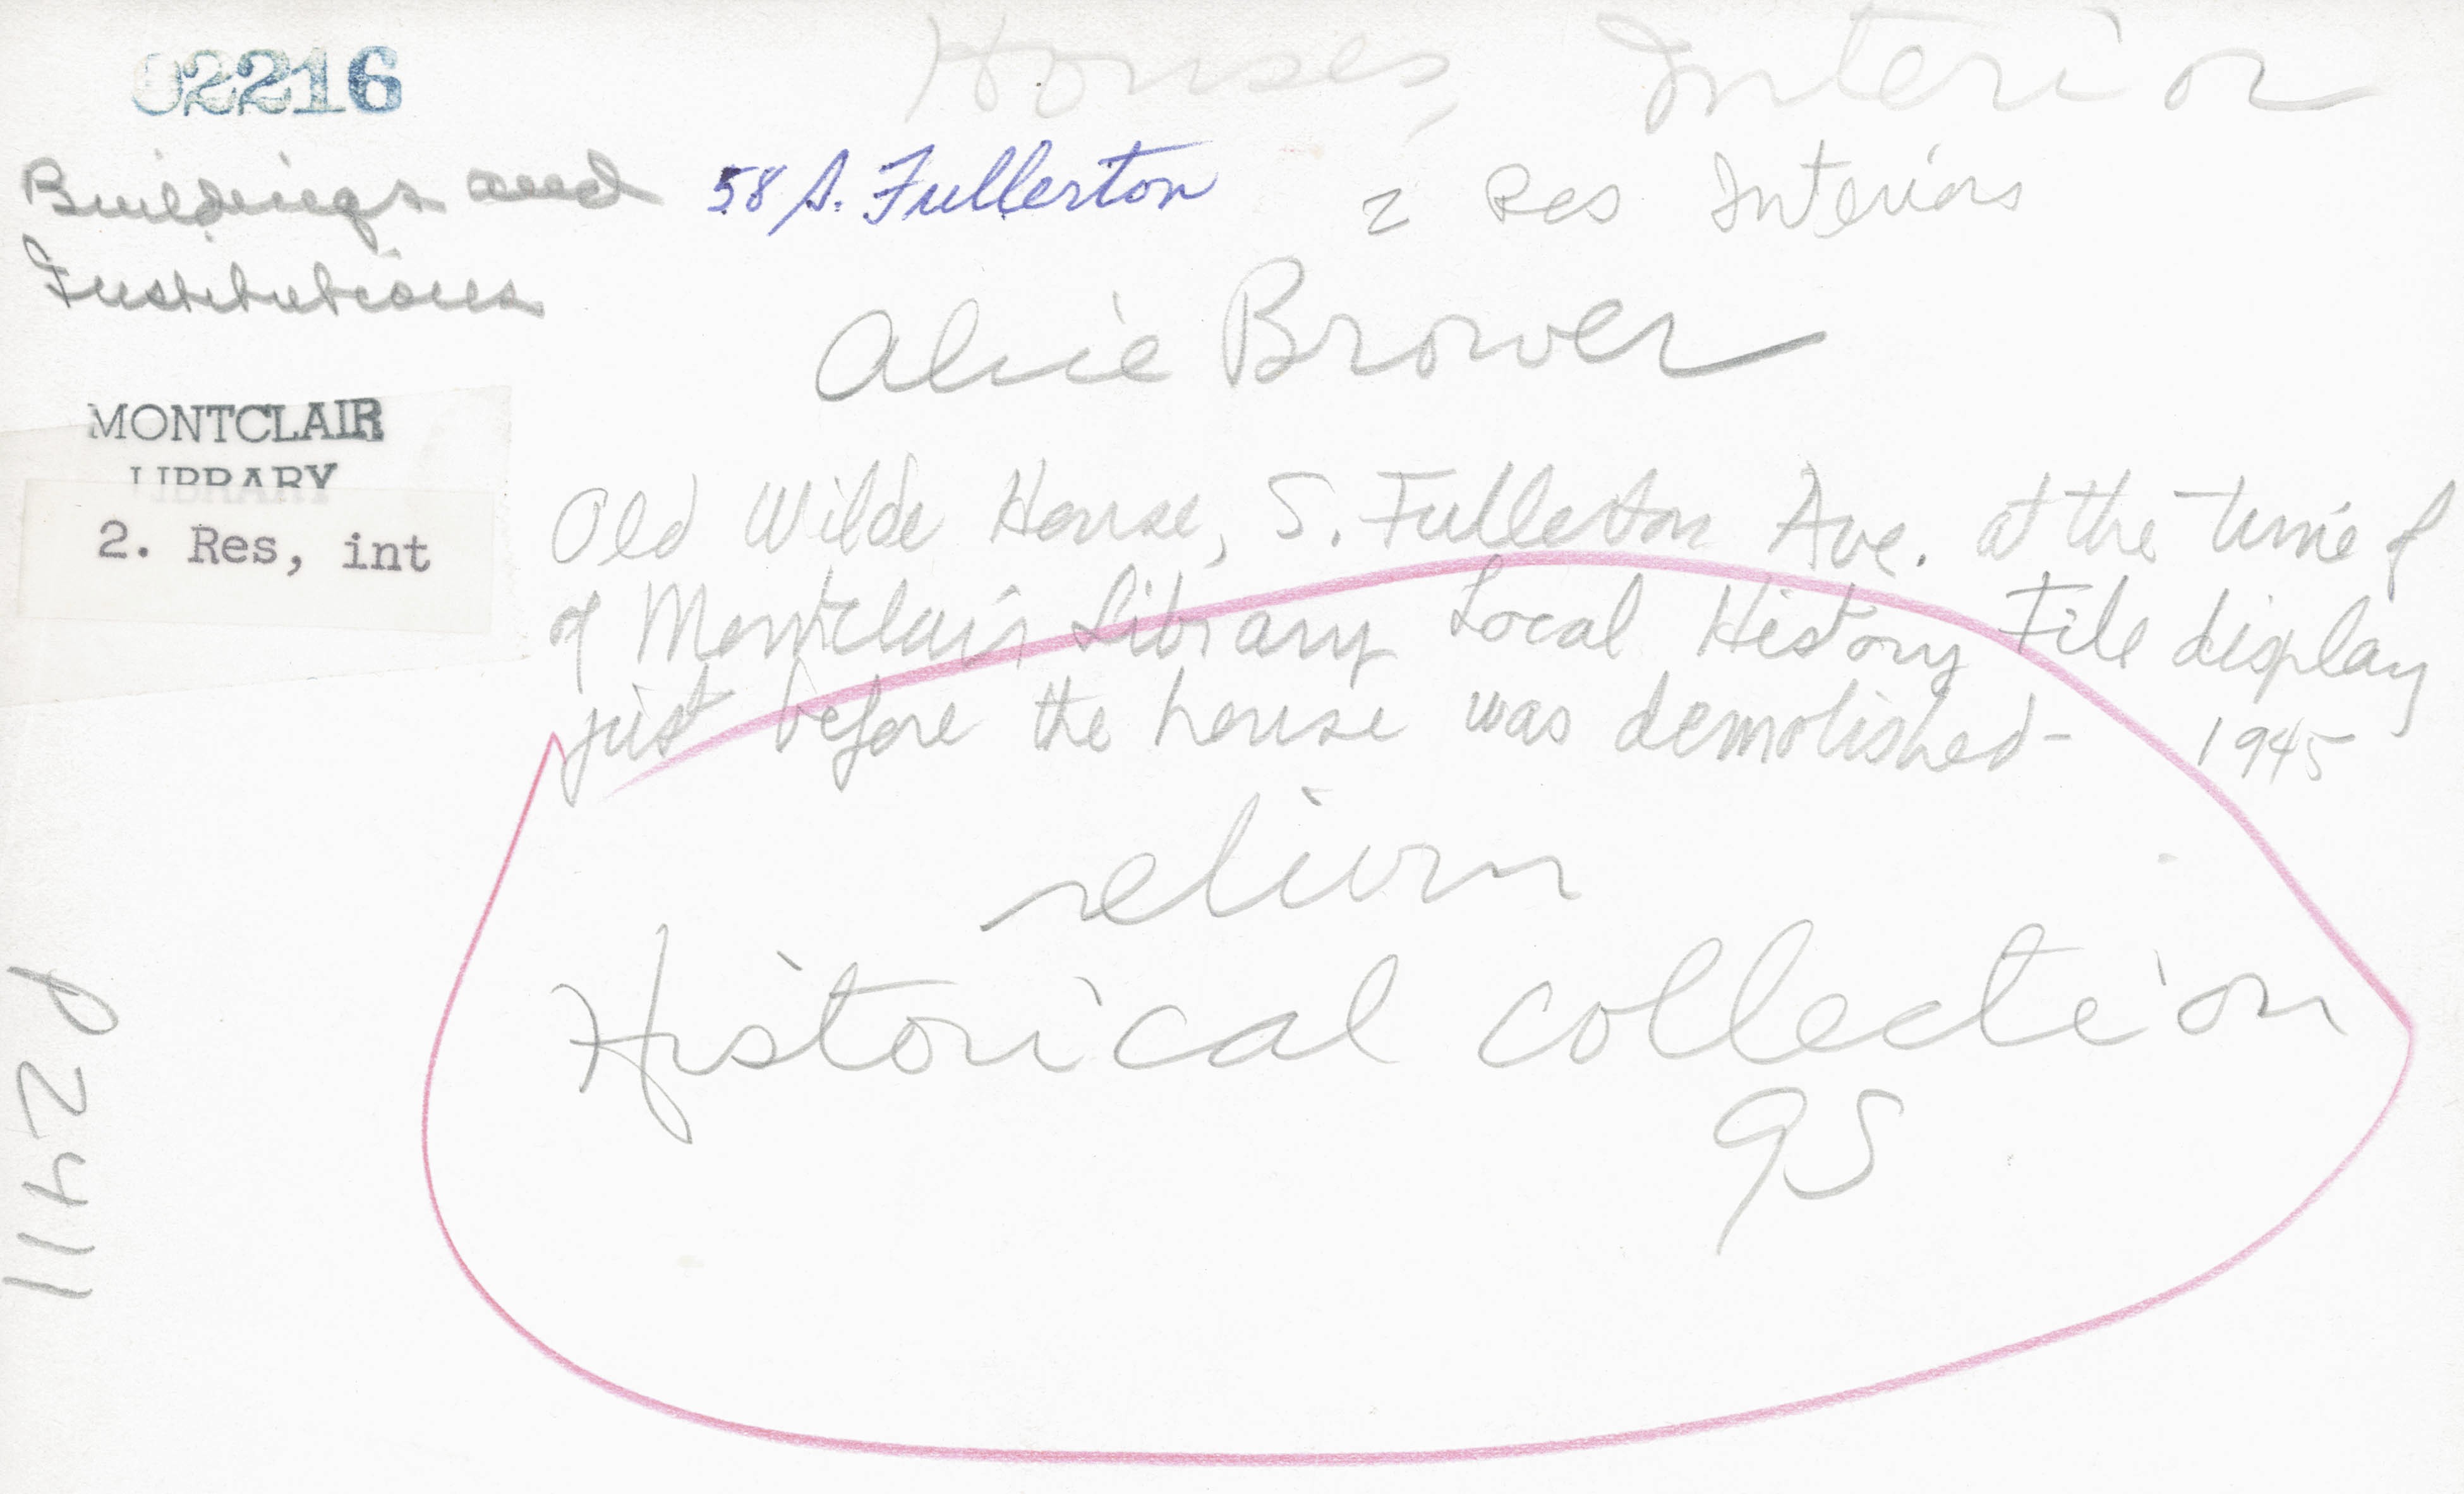 02216
Houses, Interior
Buildings and
Institutions
58 S. Fullerton
2 Res Interiors
Alice Brower
MONTCLAIR
LIBRARY
2. Res, int
Old Wilde House, S. Fullerton Ave. at the time of
of Montclair Library Local History File display
just before the house was demolished - 1945
return
Historical collection
95
P2411